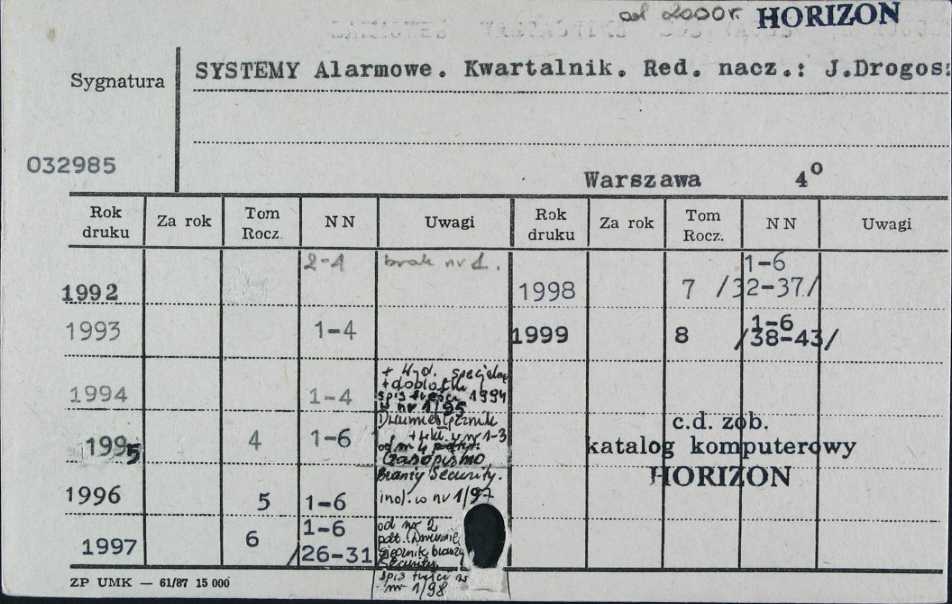 od 2000r. HORIZON
Sygnatura SYSTEMY Alarmowe. Kwartalnik. Red. nacz.: J.Drogosz
032985
Warszawa 4°
Rok druku Za rok Tom Rocz. N N Uwagi Rok druku Za rok Tom Rocz. N N Uwagi
1992 2-4 brak nr 1. 1998 7 1-6 /32-37/
1993 1-4 1999 8 1-6 /38-43/
1994 1-4 + wyd. specjalne
+ dobłotki
spis treści 1994
w nr 1/95
1995 4 1-6 Dwumiesięcznik
+ wkł. w nr 1-3
od nr 4 podtyt.
Czasopismo
Branży Security.
c.d. zob.
katalog komputerowy
HORIZON
1996 5 1-6 ind. w nr 1/97
1997 6 1-6 /26-31/ od nr 2
podt. Dwumie
sięcznik branży
Security
spis treści w
nr 1/98
ZP UMK — 61/87 15 000